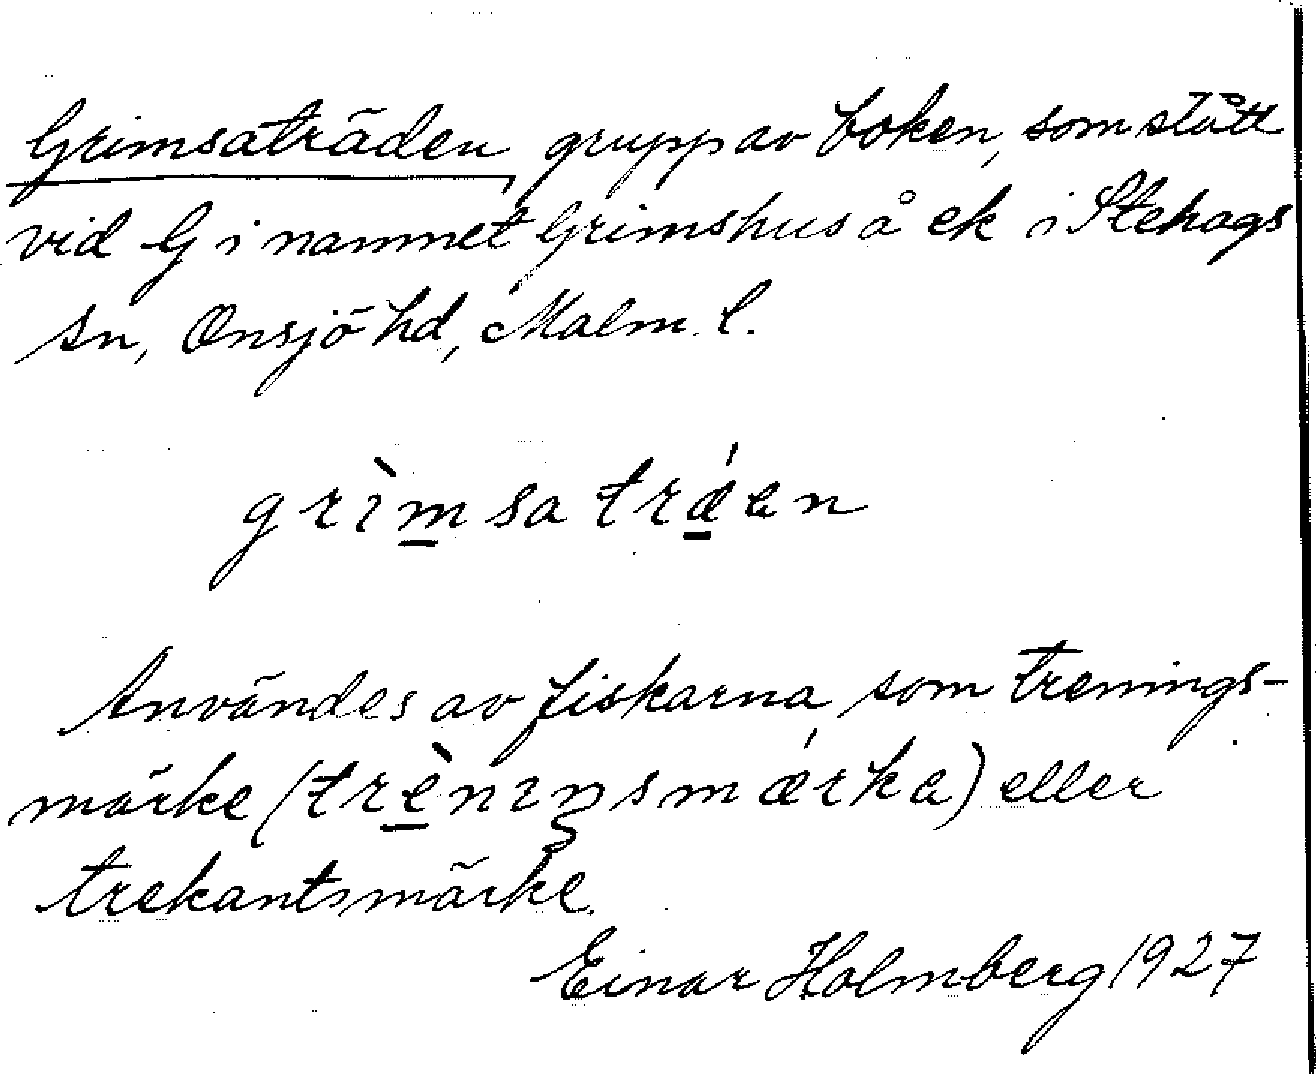 Grimsaträden, grupp av boken, som stått
vid G i namnet Grimshus å ek i Stehags
sn, Onsjö hd, Malm. l.
grìmsa trǽen
Användes av fiskarna som trenings-
märke (trènıŋsmǽrka) eller
trekantsmärke.
Einar Holmberg 1927